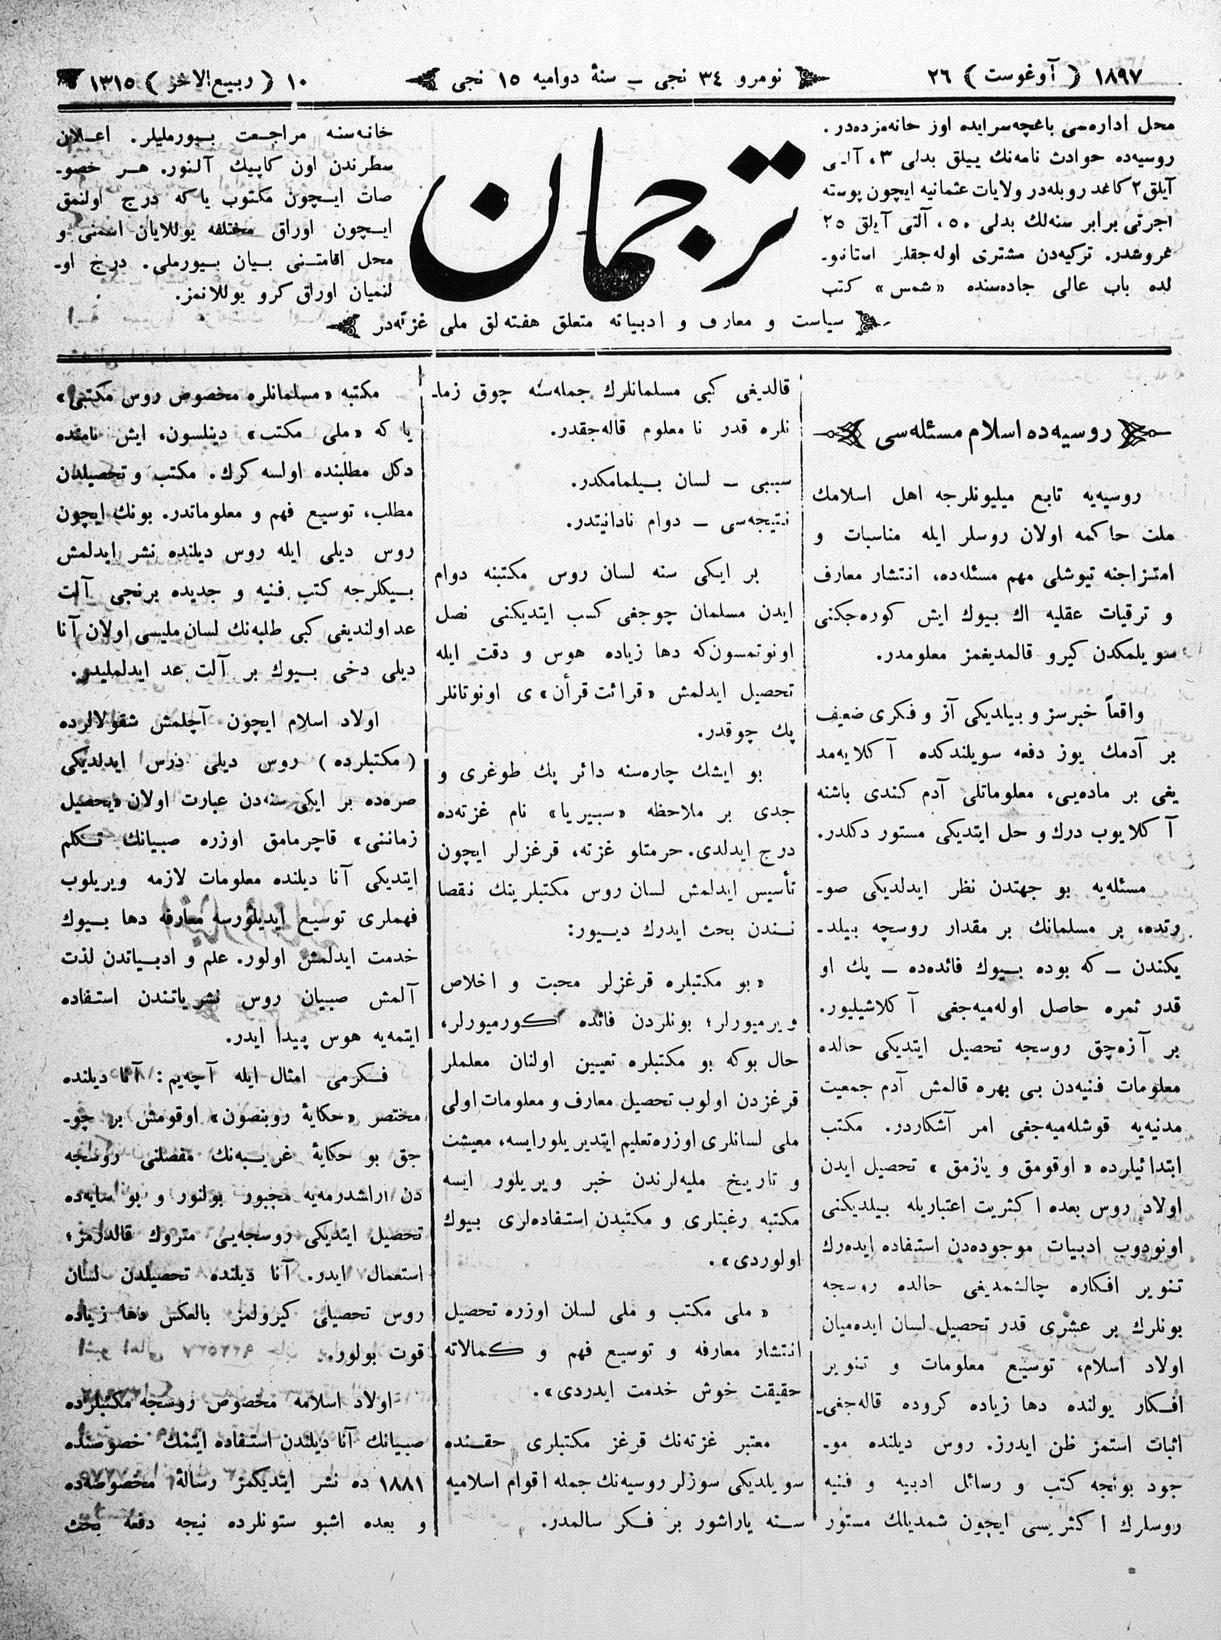 ١٨٩٧ ( آوغوست ) ٢٦
نومرو ٣٤ نجی ــ سنهٔ دوامیه ١٥ نجی
١٠ ( ربیع‌الاخر ) ١٣١٥
محل اداره‌سی باغچه‌سرایده اوز خانه‌مزده‌در.
روسیه‌ده حوادث نامه‌نك ییلق بدلی ٣، آلـتی
آیلق ٢ کاغد روبله‌در ولایات عثمانیه ایچون پوسته
اجرتی برابر سنه‌لك بدلی ٥٠، آلتی آیلق ٢٥
غروشدر. ترکیه‌دن مشتری اوله‌جقلر استانبو‍ـ
لده باب عالی جاده‌سنده «شمس» کتب
ترجمان
خانه‌سنه مراجـعت بـیورملیلر. اعـلان
سطرندن اون کاپیك آلنور. هـر خصو‍ـ
صات ایـچون مکتوب یا که درج اولنمق
ایـچون اوراق مختلفه یوللایان اسمنی و
محل اقامتـنی بـیان بـیورملی. درج او‍ـ
لنمیان اوراق کرو یوللانمز.
سیاست و معارف و ادبیاته متعلق هفته‌لق ملی غزته‌در
روسیه‌ده اسلام مسئله‌سی
روسیه‌یه تابع میلیونلرجه اهل اسلامك
ملت حاکمه اولان روسلر ایله مناسبات و
امتزاجنه تیوشلی مهم مسئله‌ده، انتشار معارف
و ترقیات عقلیه اك بـیوك ایش کوره‌جکنی
سویلمکدن کیرو قالمدیغمز معلومدر.
واقعاً خبرسز و بیلدیکی آز و فکری ضعیف
بر آدمك یوز دفعه سویلندکده آکلایه‌مد
یغی بر ماده‌یی، معلوماتلی آدم کندی باشنه
آکلایوب درك و حل ایتدیکی مستور دکلدر.
مسئله‌یه بو جهتدن نظر ایدلدیکی صو‍ـ
رتده، بر مسلمانك بر مقدار روسچه بیلد‍ـ
یکندن ــ که بوده بـیوك فائده‌ده ــ پك او
قدر ثمره حاصل اوله‌میه‌جغی آکلاشیلیور.
بر آزه‌چق روسجه تحصیل ایتدیکی حالده
معلومات فنیه‌دن بی بهره قالمش آدم جمعیت
مدنیه‌یه قوشله‌میه‌جغی امر آشکاردر. مکتب
ابتدائیلرده « اوقومق و یازمق » تحصیل ایدن
اولاد روس بعده اکثریت اعتباریله بیلدیکنی
اونودوب ادبیات موجوده‌دن استفاده ایده‌رك
تـنویر افکاره چالشمدیغی حالده روسجه
بونلرك بر عشری قدر تحصیل لسان ایده‌میان
اولاد اسلام، توسیع معلومات و تنویر
افـکار یولنده دها زیاده کروده قاله‌جغی
اثبات استمز ظن ایدرز. روس دیلنده مو‍ـ
جود بونجه کتب و رسائل ادبیه و فنیه
روسلرك اکثریسی ایچون شمدیلك مستور
قالدیغی کبی مسلمانلرك جمله‌سنه چوق زما‍ـ
نلره قدر نا معلوم قاله‌جقدر.
سببی ــ لسان بـیلمامکدر.
نتیجه‌سی ــ دوام نادانیتدر.
بر ایـکی سنه لسان روس مکتبنه دوام
ایدن مسلمان چوجغی کسب ایتدیکنی نصل
اونوتمسون‌که دها زیاده هوس و دقت ایله
تحصیل ایدلمش «قرائت قرأن» ی اونوتانلر
پك چوقدر.
بو ایشك چاره‌سنه دائر پك طوغری و
جدی بر ملاحظه «سیبریا» نام غزته‌ده
درج ایدلدی. حرمتلو غزته، قرغزلر ایچون
تأسیس ایدلمش لسان روس مکتبلرینك نـقصا
نـندن بحث ایدرك دیـیور:
«بو مکتبلره قرغزلر محبت و اخلاص
ویرمیورلر؛ بونلردن فائده کورمیورلر،
حال بوکه بو مکتبلره تعیین اولنان معلملر
قرغزدن اولوب تحصیل معارف و معلومات اولی
ملی لسانلری اوزره تعلیم ایتدیریلورایسه، معیشت
و تاریخ ملیه‌لرندن خبر ویریلور ایسه
مکتبه رغبتلری و مکتبدن استفاده‌لری بـیوك
اولوردی».
«ملی مکتب و ملی لسلن اوزره تحصیل
انتشار معارفه و توسیع فهم و کمالاته
حقیقت خوش خدمت ایدردی».
معتبر غزته‌نك قرغز مکتبلری حقـنده
سویلدیکی سوزلر روسیه‌نك جمله اقوام اسلامیه
سـنه یاراشور بر فـکر سالمدر.
مکتبه «مسلمانلره مخصوص روس مکتبی»
یا که «ملی مکتب» دینلسون، ایش نامنده
دکل مطلبنده اولسه کرك. مکتب و تحصیلدن
مطلب، توسیع فهم و معلوماتدر. بونك ایچون
روس دیلی ایله روس دیلنده نشر ایدلمش
بـیکلرجه کتب فنیه و جدیده برنجی آلت
عد اولندیغی کبی طلبه‌نك لسان ملیسی اولان آنا
دیلی دخی بـیوك بر آلت عد ایدلملیدر.
اولاد اسلام ایچون آچلمش شقولالرده
(مکتبلرده) روس دیلی درس ایدلدیکی
صره‌ده بر ایکی سنه‌دن عبارت اولان «تحصیل
زماننی» قاچرمامق اوزره صبیانك تـکلم
ایتدیکی آنا دیلنده معلومات لازمه ویریلوب
فهملری توسیع ایدیلورسه معارفه دها بـیوك
خدمت ایدلمش اولور. علم و ادبـیاتدن لذت
آلمش صبیان روس نشریاتندن استفاده
ایتمه‌یه هوس پیدا ایدر.
فـکرمی امثال ایله آچه‌یم: آنا دیلنده
مختصر «حکایهٔ روبنصون» اوقومش بر چو‍ـ
جق بو حکایهٔ غریـبه‌نك مفصلنی روسجه
دن اراشدرمه‌یه مجبور بولنور و بو سایه‌ده
تحصیل ایتدیکی روسجه‌یی متروك قالدرمز؛
استعمال ایدر. آنا دیلنده تحصیلدن لسان
روس تحصیلی کیرولمز بالعکس دها زیاده
قوت بولور.
اولاد اسلامه مخصوص روسجه مکتبلرده
صبیانك آنا دیلندن استفاده ایتمك خصوصنده
١٨٨١ ده نشر ایتدیکمز رسالهٔ مخصوصه‌ده
و بعده اشبو ستونلرده نیجه دفعه بحث